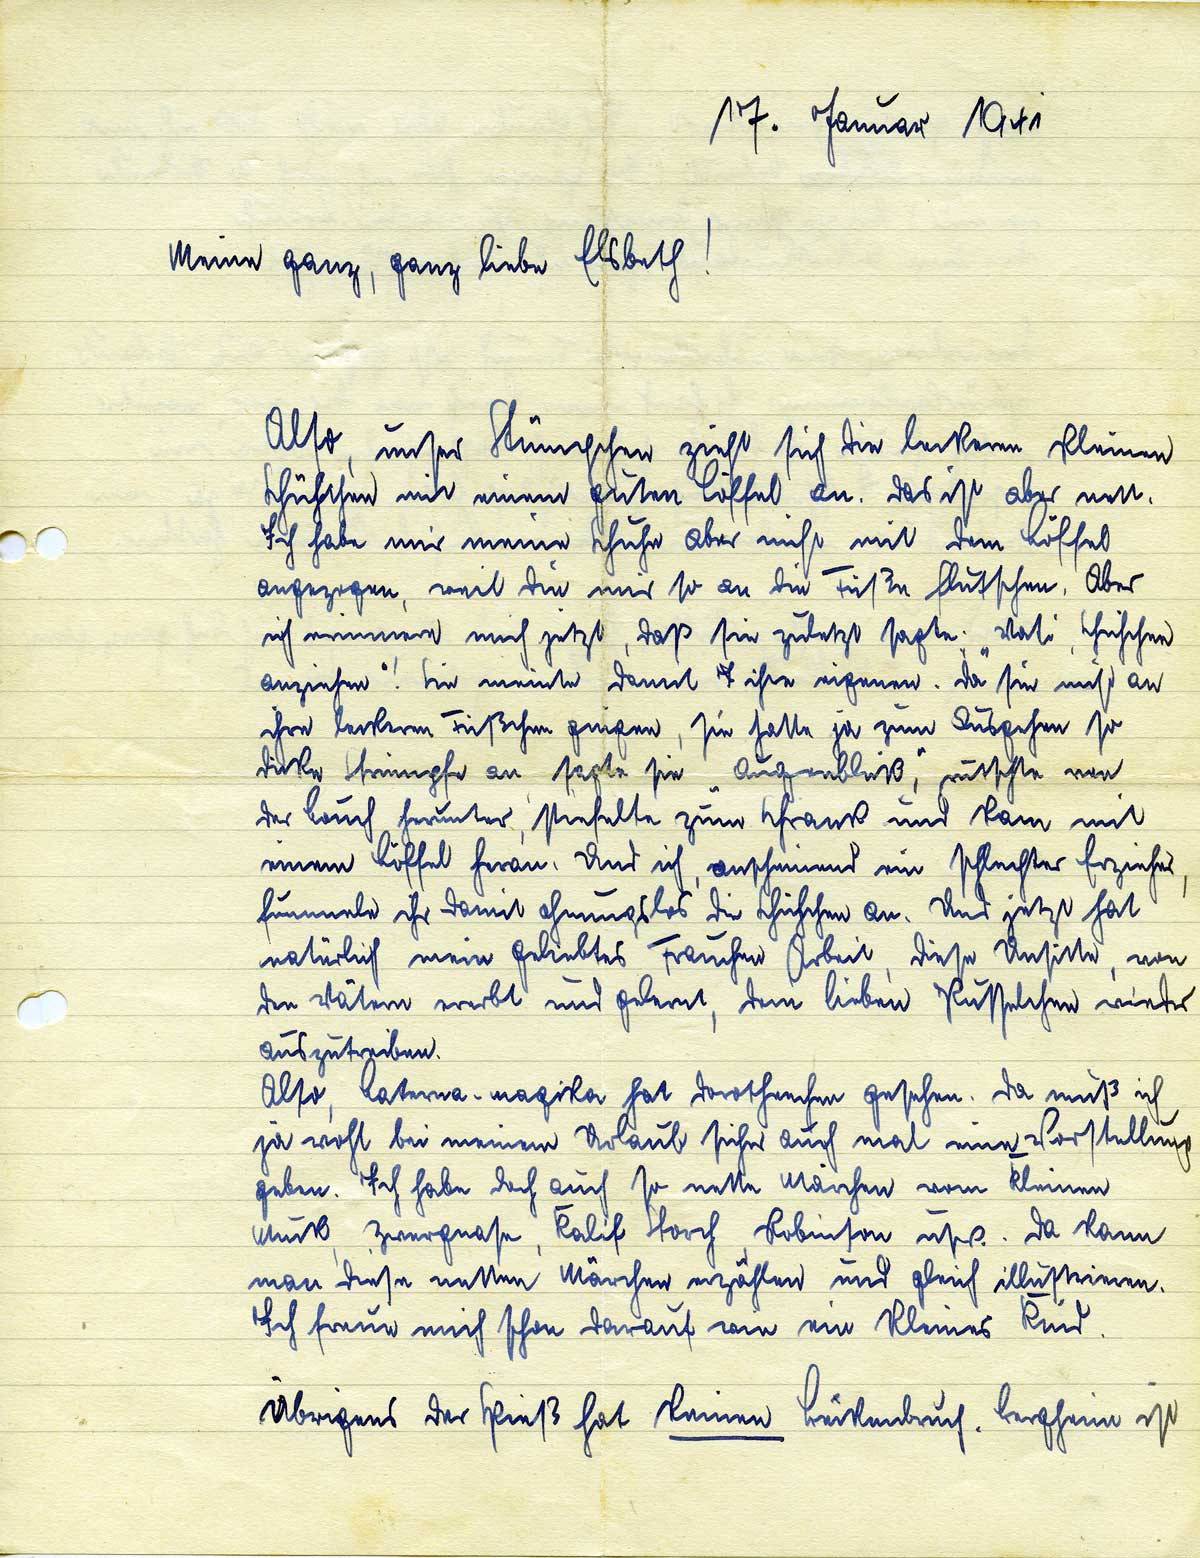 17. Januar 1941
Meine ganz, ganz liebe Elsbeth!
Also, unser Stümpchen zieht sich die leckeren kleinen
Schühchen mit einem guten Löffel an. Das ist aber nett.
Ich habe mir meine Schuhe aber nicht mit dem Löffel
angezogen, weil die mir so an die Füße flutschen. Aber
ich erinnere mich jetzt, daß sie zuletzt sagte: „Vati, Schühchen
anziehen"! Sie meinte damit ihre eigenen. Da sie nicht an
ihre leckeren Füßchen gingen, sie hatte ja zum Ausgehen so
dicke Strümpfe an, sagte sie „Augenblick", rutschte von
der Couch herunter, stiefelte zum Schrank und kam mit
einem Löffel heran. Und ich, anscheinend ein schlechter Erzieher,
fummele ihr damit ahnungslos die Schühchen an. Und jetzt hat
natürlich mein geliebtes Frauchen Arbeit, diese Unsitte, von
den Vätern ererbt und gelernt, dem lieben Musselchen wieder
auszutreiben.
Also, Laterna-magika hat Dorotheechen gesehen. Da muß ich
ja wohl bei meinem Urlaub sicher auch mal eine Vorstellung
geben. Ich habe doch auch so nette Märchen vom kleinen
Muck, Zwergnase, Kalif Storch, Robinson usw.. Da kann
man diese netten Märchen erzählen und gleich illustrieren.
Ich freue mich schon darauf wie ein kleines Kind.
Übrigens der Spieß hat keinen Beckenbruch. Bergheim ist